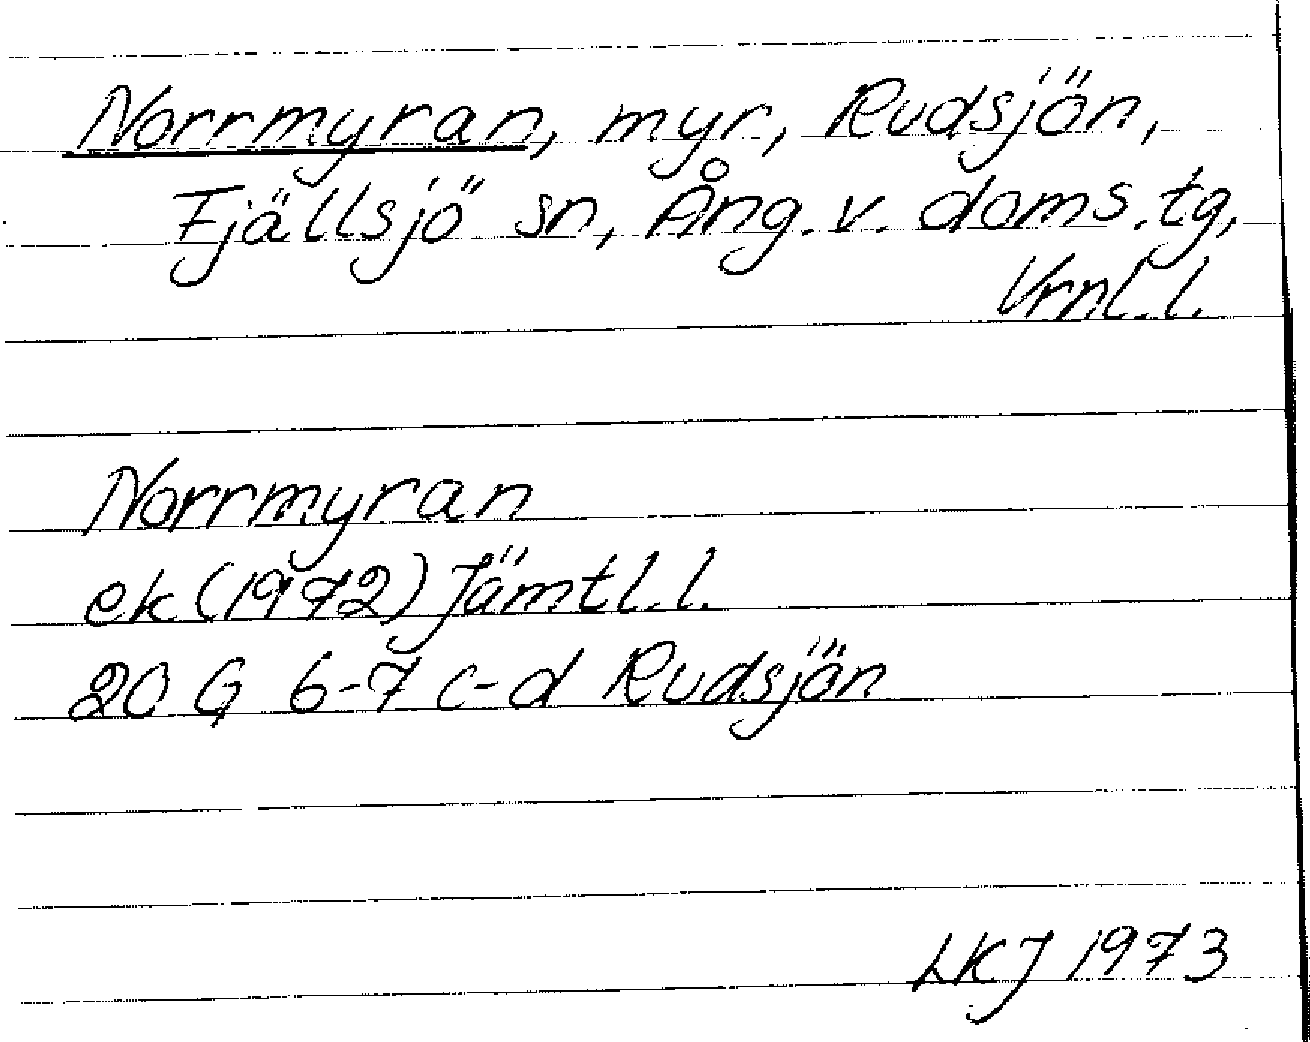 Norrmyran, myr, Rudsjön,
Fjällsjö sn, Ång. v. doms. tg,
Vrnl. l.
Norrmyran
ek (1972) Jämtl. l.
20 G 6-7 c-d Rudsjön
LKJ 1973